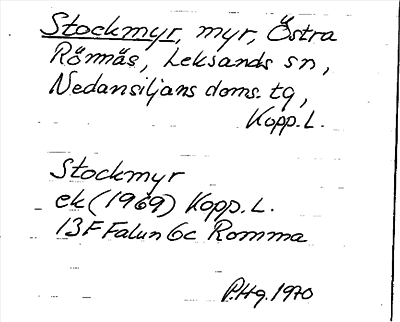 Stockmyr, myr, Östra
Rönnäs, Leksands sn,
Nedansiljans doms. tg,
Kopp. L.
Stockmyr
ek (1969) Kopp. L.
13F Falun 6c Romma
P.Hg. 1970